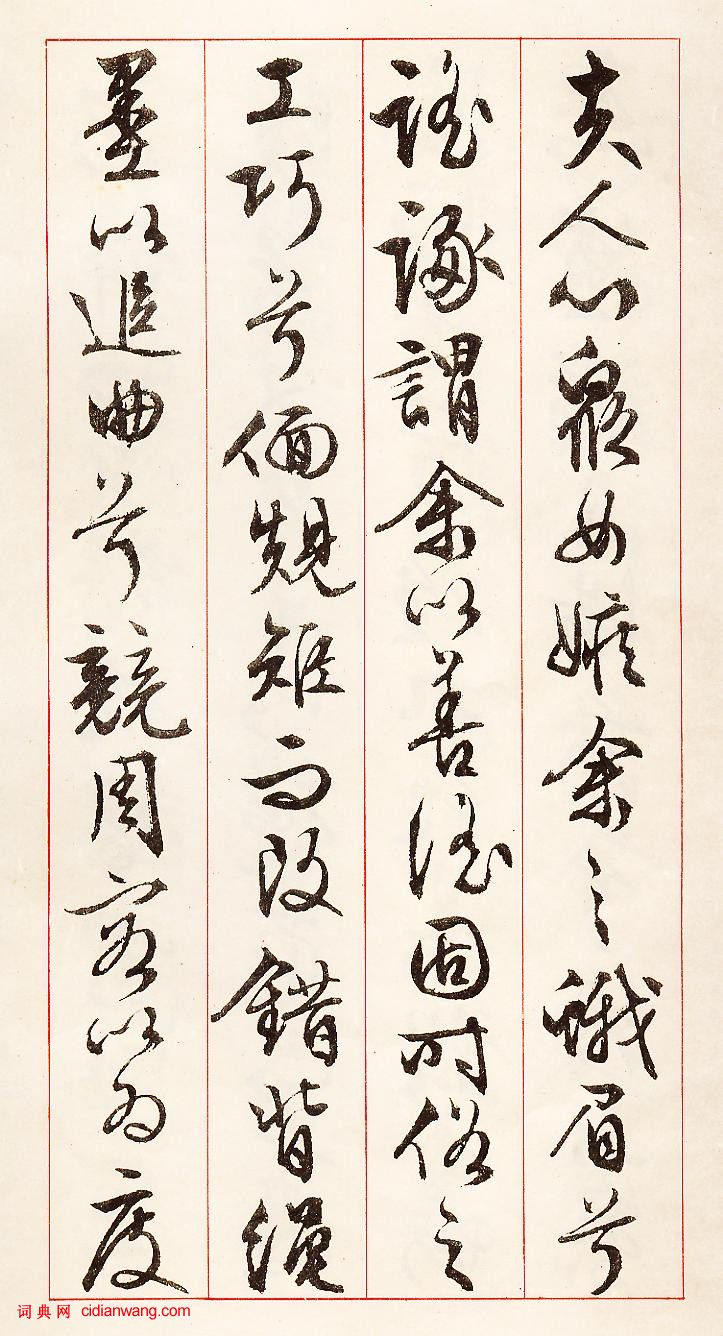 夫人心眾女嫉余之蛾眉兮
謠諑謂余以善淫固時俗之
工巧兮偭規矩而改錯背繩
墨以追曲兮競周容以為度
词典网 cidianwang.com